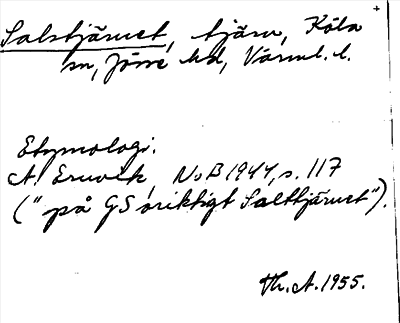 Salstjärnet, tjärn, Köla
sn, Jösse hd, Värml. l.
Etymologi:
A. Ernvik, NoB 1944, s. 117
("på GS oriktigt Salttjärnet").
Th. A. 1955.